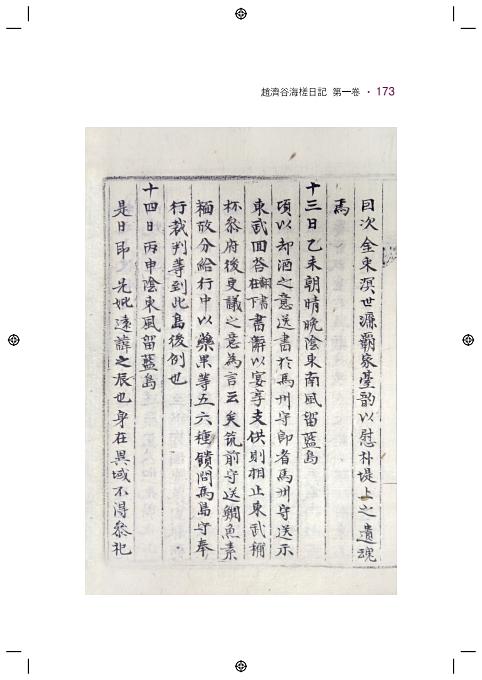 趙濟谷海槎日記 第一卷 · 173
目次金東溟世濂霸家臺韵以慰朴堤上之遺魂
焉
十三日乙未朝晴晩陰東南風留藍島
頃以却酒之意送書於馬州守卽者馬州守送示
東武回答書辭以宴享支供則相止東武稱
在飜
下書
杯叅府後更議之意為言云矣筑前守送鯛魚素
麵故分給行中以藥果等五六種饋問馬島守奉
行裁判等到此島後例也
十四日丙申陰東風留藍島
是日卽先妣遠諱之辰也身在異域不得叅祀